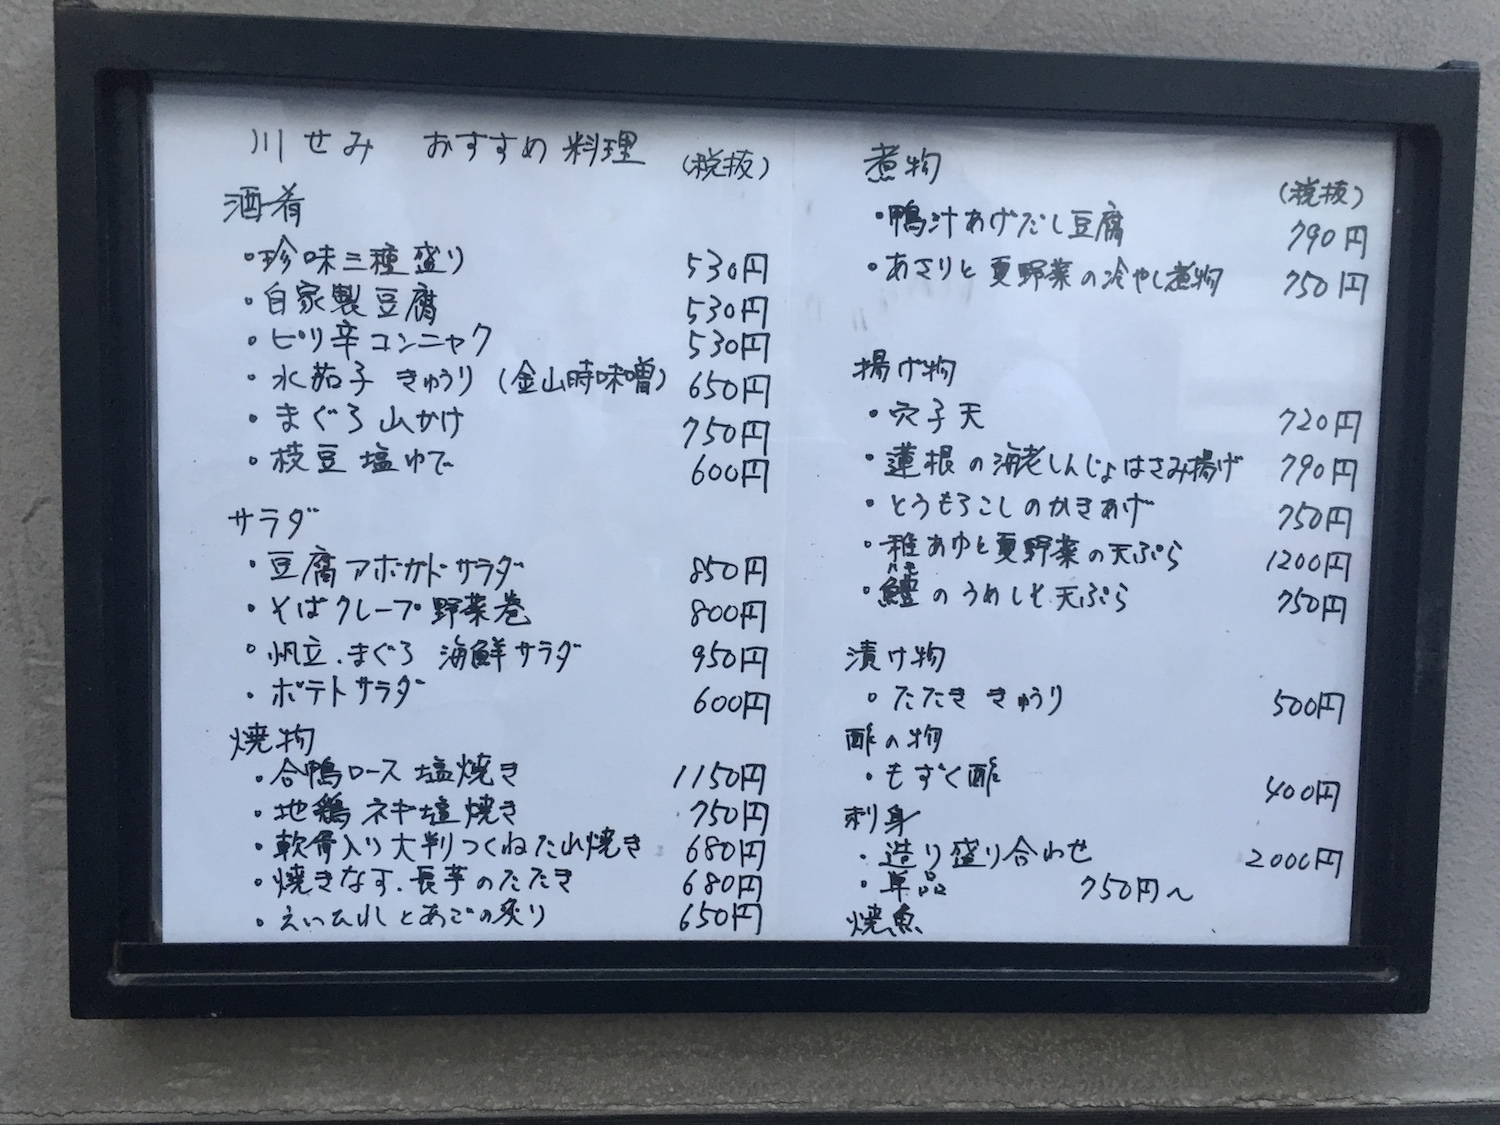 川せみ おすすめ料理 (税抜)
酒肴
・珍味三種盛り 530円
・自家製豆腐 530円
・ピリ辛コンニャク 530円
・水茄子 きゅうり (金山時味噌) 650円
・まぐろ山かけ 750円
・枝豆塩ゆで 600円
サラダ
・豆腐アボカドサラダ 850円
・そばクレープ野菜巻 800円
・帆立.まぐろ 海鮮サラダ 950円
・ポテトサラダ 600円
焼物
・合鴨ロース塩焼き 1150円
・地鶏ネギ塩焼き 750円
・軟骨入り大判つくねたれ焼き 680円
・焼きなす.長芋のたたき 680円
・えいひれとあごの炙り 650円
煮物 (税抜)
・鴨汁あげだし豆腐 790円
・あさりと夏野菜の冷やし煮物 750円
揚げ物
・穴子天 720円
・蓮根の海老しんじょはさみ揚げ 790円
・とうもろこしのかきあげ 750円
・稚あゆと夏野菜の天ぷら 1200円
ハモ
・鱧のうめしそ天ぷら 750円
漬け物
・たたききゅうり 500円
酢の物
・もずく酢 400円
刺身
・造り盛り合わせ 2000円
・単品 750円〜
焼魚